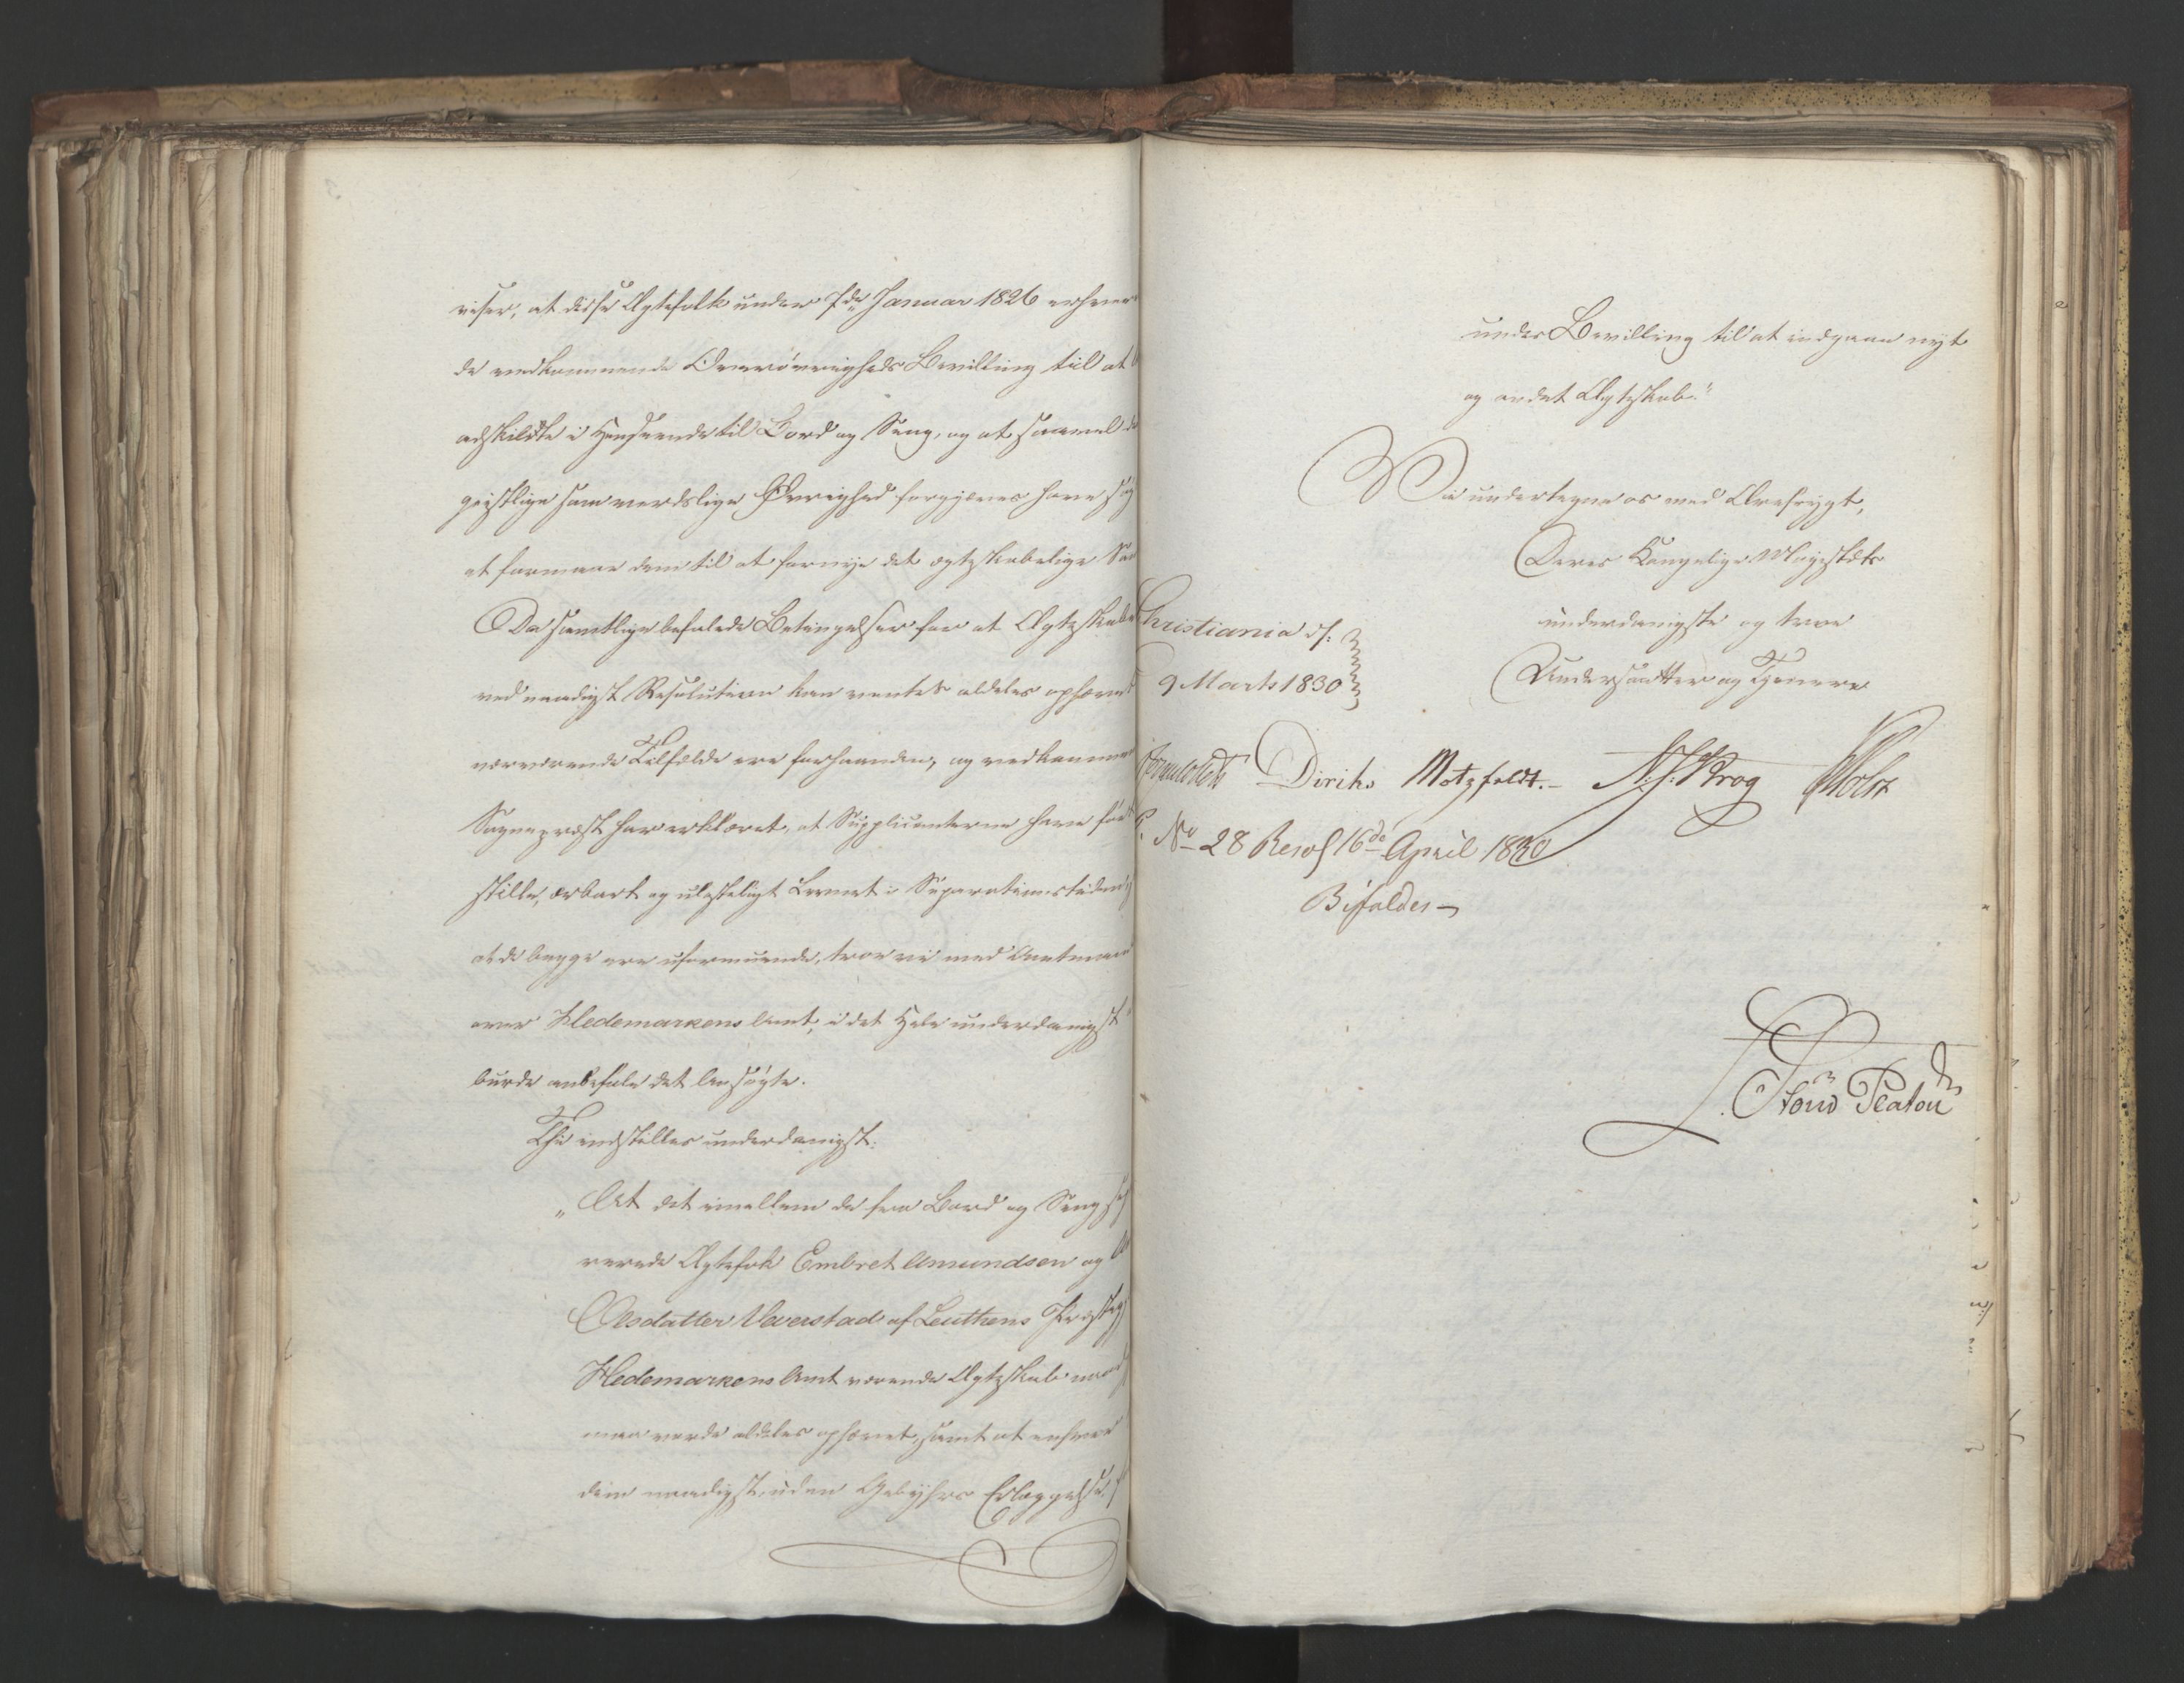 viser, at disse Ægtefolk under 7de Januar 1826 erhver
de vedkommende Overøvrigheds Bevilling til at
adskildte i Henseende til Bord og Seng, og at saavel de
geistlige som verdslige Øvrighed forgjæves have søg
at formaae dem til at fornye det ægteskabelige Sam
Da samtlige befalede Betingelser for at Ægteskabe
ved naadigst Resolution kan ventes aldeles ophævet
nærværende Tilfælde ere forhaanden, og vedkommen
Sognepræst har erklæret, at Supplicanterne have før
stille, ærbart og ulasteligt Levnet i Separationstiden,
at de begge ere uformuende, troe vi med Amtmand
over Hedemarkens Amt, i det Hele underdanigst
burde anbefale det Ansøgte.
Thi indstilles underdanigst:
„At det imellem de fra Bord og Seng sep
rerede Ægtefolk Embret Amundsen og
Olsdatter Ueverstad af Leuthens Præstegj
Hedemarkens Amt værende Ægteskab naad
maa vorde aldeles ophævet, samt at enhver
dem naadigst, uden Gebyhrs Erlæggelse, f
undes Bevilling til at indgaae nyt
og andet Ægteskab."
Vi undertegne os med Ærefrygt,
Deres Kongelige Majestæts
underdanigste og troe
Christiania d:
Undersaatter og Tjenere
9 Marts 1830
Diriks Motzfeldt.- N. J. Krog Holst
No 28 Resol 16de April 1830
Bifaldes -
Platou